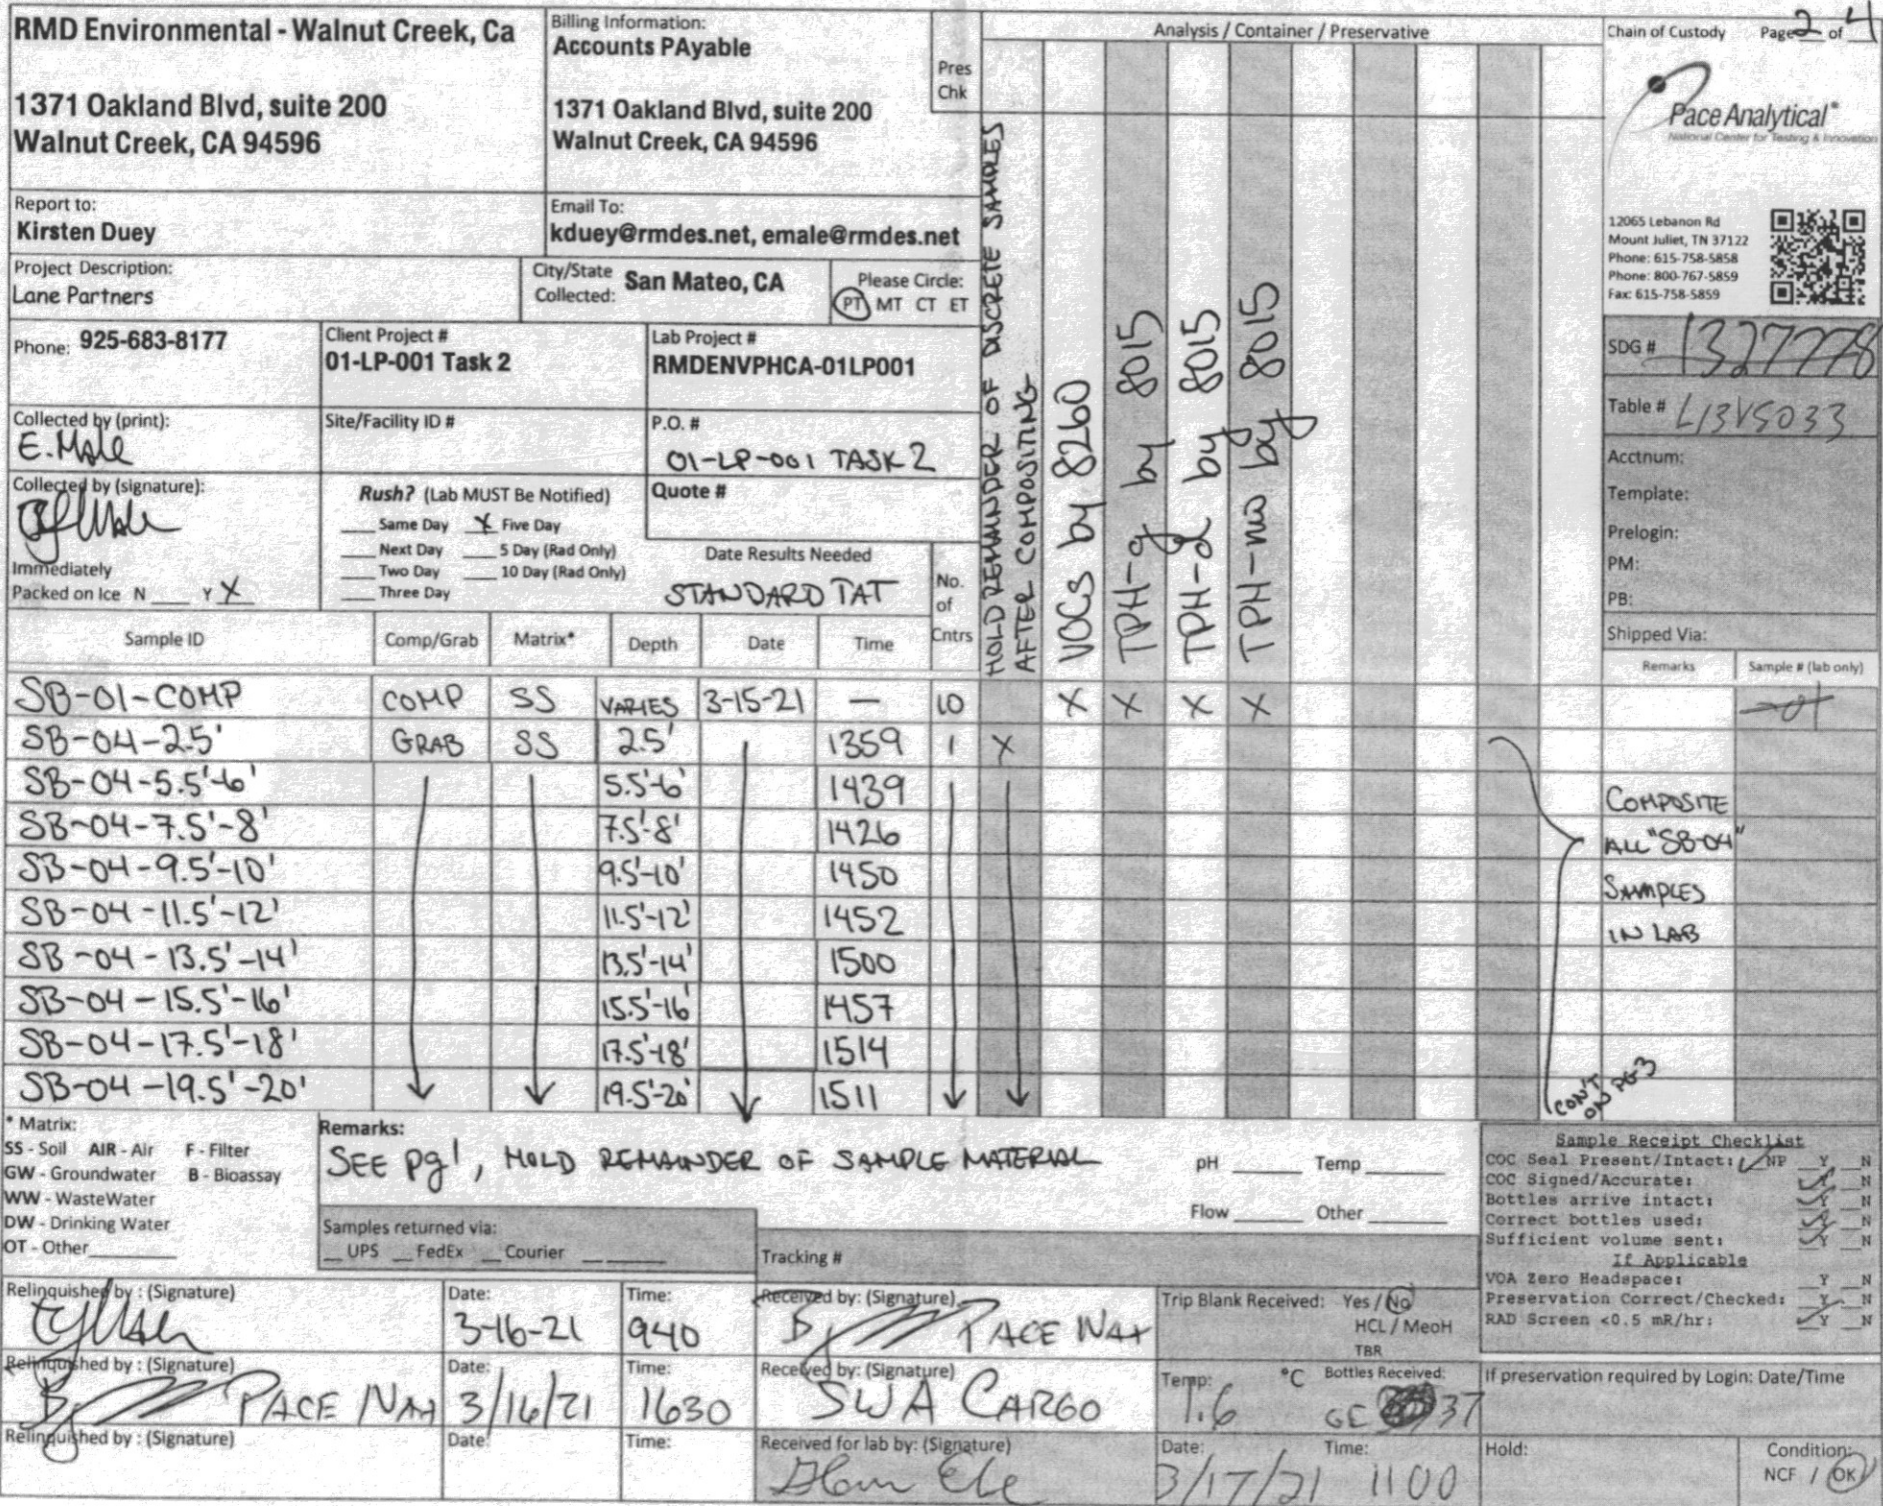 RMD Environmental - Walnut Creek, Ca
1371 Oakland Blvd, suite 200
Walnut Creek, CA 94596
Billing Information:
Accounts PAyable
1371 Oakland Blvd, suite 200
Walnut Creek, CA 94596
Pres
Chk
Analysis / Container / Preservative
Chain of Custody Page 2 of 4
Pace Analytical®
National Center for Testing & Innovation
12065 Lebanon Rd
Mount Juliet, TN 37122
Phone: 615-758-5858
Phone: 800-767-5859
Fax: 615-758-5859
Report to:
Kirsten Duey
Email To:
kduey@rmdes.net, emale@rmdes.net
Project Description:
Lane Partners
City/State
Collected: San Mateo, CA
Please Circle:
PT MT CT ET
Phone: 925-683-8177
Client Project #
01-LP-001 Task 2
Lab Project #
RMDENVPHCA-01LP001
Collected by (print):
E. Male
Site/Facility ID #
P.O. #
01-LP-001 TASK 2
Collected by (signature):
Immediately
Packed on Ice N ___ Y X
Rush? (Lab MUST Be Notified)
___ Same Day X Five Day
___ Next Day ___ 5 Day (Rad Only)
___ Two Day ___ 10 Day (Rad Only)
___ Three Day
Quote #
Date Results Needed
STANDARD TAT
No.
of
Cntrs
HOLD REMAINDER OF DISCRETE SAMPLES
AFTER COMPOSITING
VOCs by 8260
TPH-g by 8015
TPH-d by 8015
TPH-mo by 8015
SDG # 1327778
Table # L13V5033
Acctnum:
Template:
Prelogin:
PM:
PB:
Shipped Via:
Remarks Sample # (lab only)
Sample ID Comp/Grab Matrix* Depth Date Time
SB-01-COMP COMP SS VARIES 3-15-21 — 10 X X X X -01
SB-04-2.5' GRAB SS 2.5' 1359 1 X
SB-04-5.5'-6' 5.5'-6' 1439
SB-04-7.5'-8' 7.5'-8' 1426
SB-04-9.5'-10' 9.5'-10' 1450
SB-04-11.5'-12' 11.5'-12' 1452
SB-04-13.5'-14' 13.5'-14' 1500
SB-04-15.5'-16' 15.5'-16' 1457
SB-04-17.5'-18' 17.5'-18' 1514
SB-04-19.5'-20' 19.5'-20' 1511
COMPOSITE
ALL "SB-04"
SAMPLES
IN LAB
CON'T
ON PG-3
* Matrix:
SS - Soil AIR - Air F - Filter
GW - Groundwater B - Bioassay
WW - WasteWater
DW - Drinking Water
OT - Other
Remarks:
SEE pg 1, HOLD REMAINDER OF SAMPLE MATERIAL
pH ___ Temp ___
Flow ___ Other ___
Samples returned via:
__ UPS __ FedEx __ Courier
Tracking #
Sample Receipt Checklist
COC Seal Present/Intact: NP Y N
COC Signed/Accurate: Y N
Bottles arrive intact: Y N
Correct bottles used: Y N
Sufficient volume sent: Y N
If Applicable
VOA Zero Headspace: Y N
Preservation Correct/Checked: Y N
RAD Screen <0.5 mR/hr: Y N
Relinquished by : (Signature)
Date:
3-16-21
Time:
940
Received by: (Signature)
PACE NAT
Trip Blank Received: Yes / No
HCL / MeoH
TBR
Relinquished by : (Signature)
PACE NAT
Date:
3/16/21
Time:
1630
Received by: (Signature)
SWA CARGO
Temp: °C
1.6
Bottles Received:
37
If preservation required by Login: Date/Time
Relinquished by : (Signature)
Date:
Time:
Received for lab by: (Signature)
Date:
3/17/21
Time:
1100
Hold:
Condition:
NCF / OK